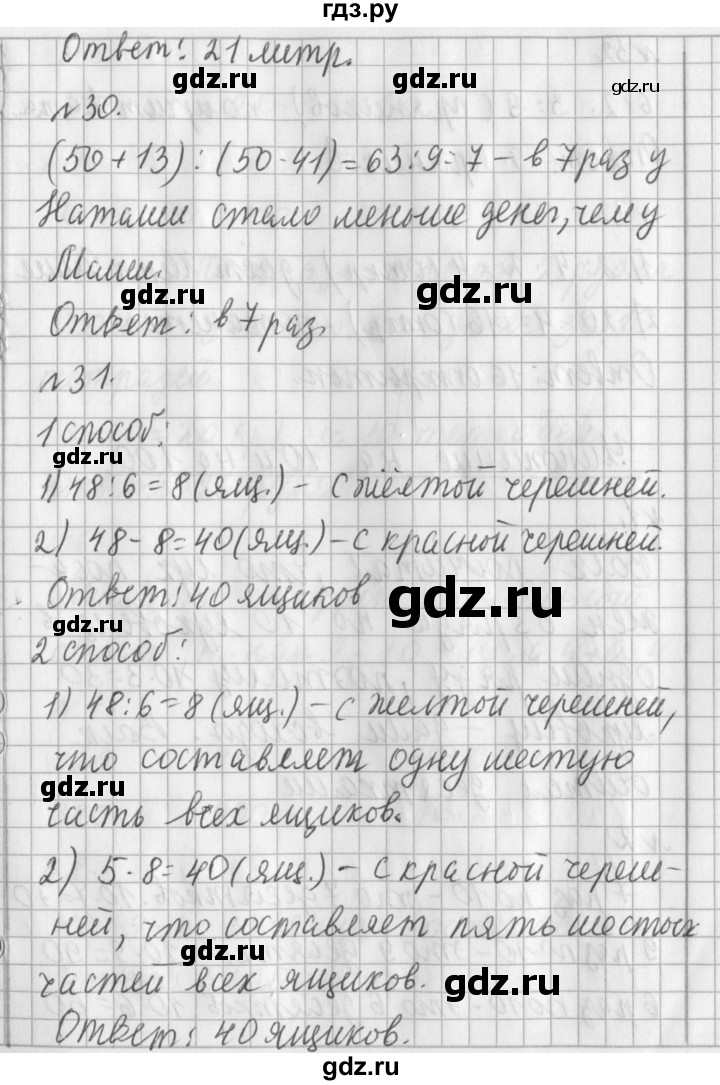 гдз.ру
Ответ: 21 литр.
gdz.ru gdz.ru
gdz.ru
№30.
(50+13):(50-41)=63:9=7 – в 7 раз у
Наташи стало меньше денег, чем у
Маши.
gdz.ru gdz.ru
Ответ: в 7 раз.
№31.
1 способ:
gdz.ru
1) 48:6=8 (ящ.) – с жёлтой черешней.
2) 48-8=40 (ящ.) – с красной черешней.
Ответ: 40 ящиков
gdz.ru
gdz.ru
2 способ:
1) 48:6=8 (ящ.) – с желтой черешней,
что составляет одну шестую
gdz.ru gdz.ru
часть всех ящиков.
2) 5·8=40 (ящ.) – с красной череш-
ней, что составляет пять шестых
gdz.ru
частей всех ящиков.
gdz.ru
Ответ: 40 ящиков.
gdz.ru